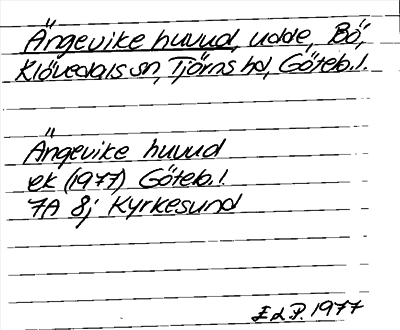 Ängevike huvud, udde, Bö,
Klövedals sn, Tjörns hd, Göteb. l.
Ängevike huvud
ek (1977) Göteb. l.
7A 8j Kyrkesund
E d. P. 1977